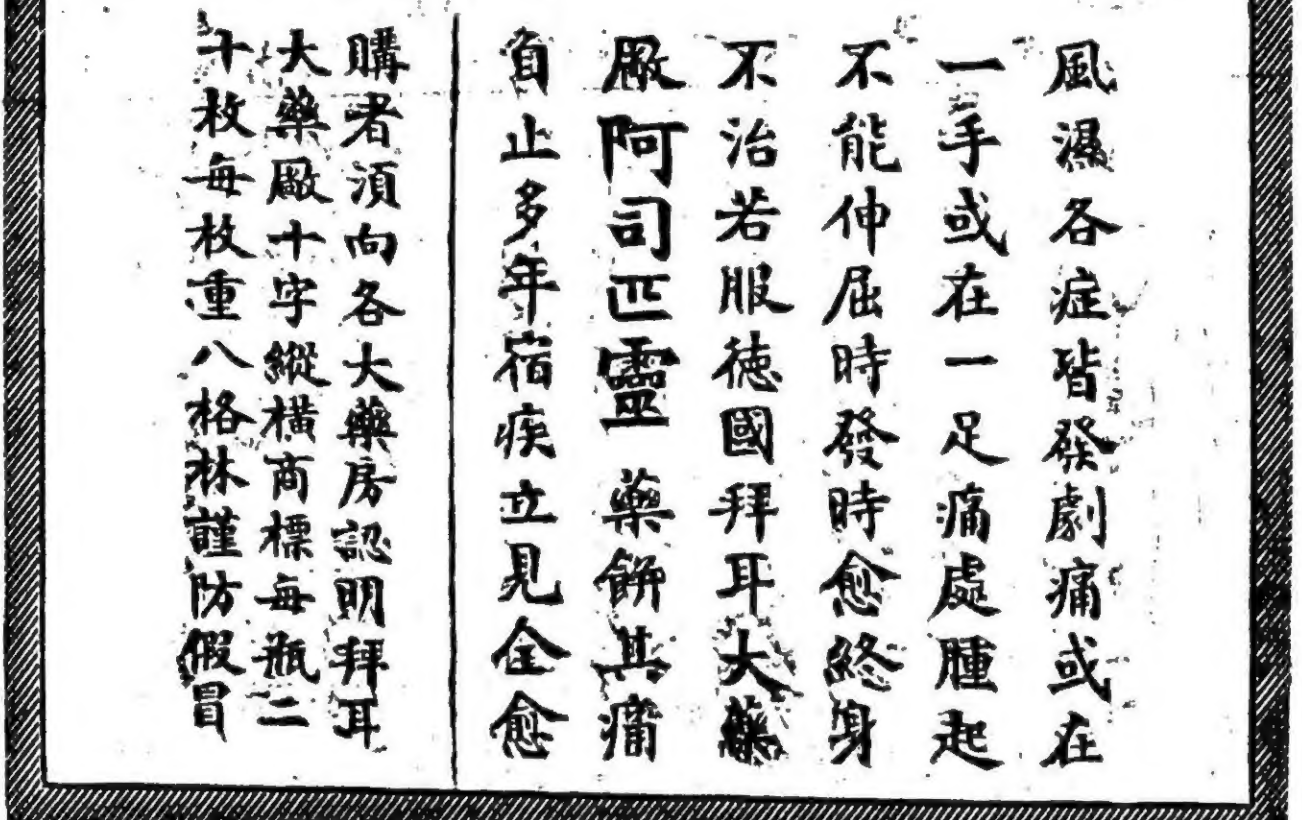 風濕各症皆發劇痛或在
一手或在一足痛處腫起
不能伸屈時發時愈終身
不治若服德國拜耳大藥
廠阿司匹靈藥餅其痛
負止多年宿疾立見全愈
購者須向各大藥房認明拜耳
大藥廠十字縱橫商標每瓶二
十枚每枚重八格林謹防假冒